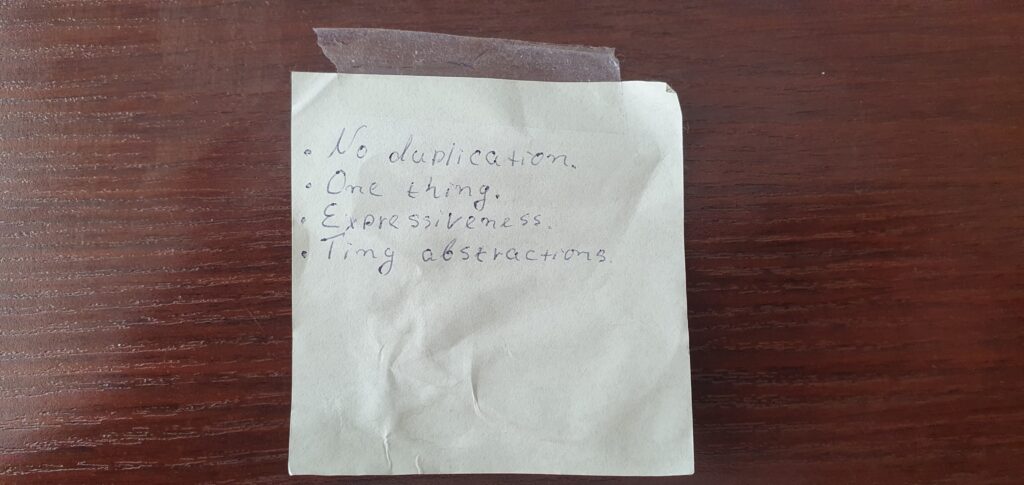 • No duplication.
• One thing.
• Expressiveness.
• Tiny abstractions.